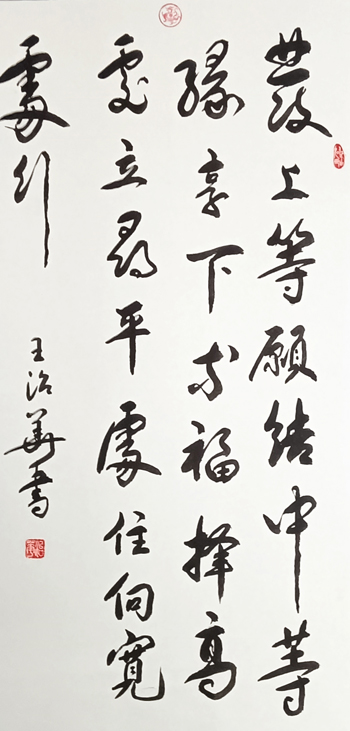 發上等願結中等
緣享下等福擇高
處立尋平處住向寬
處行
王治華書